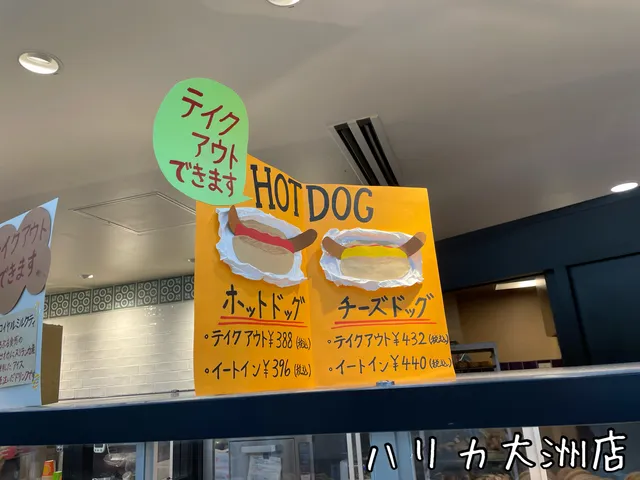 テイク
アウト
できます
HOT DOG
ホットドッグ
・テイクアウト¥388(税込)
・イートイン¥396(税込)
チーズドッグ
・テイクアウト¥432(税込)
・イートイン¥440(税込)
テイクアウト
できます
ロイヤルミルクティ
ハリカ大洲店